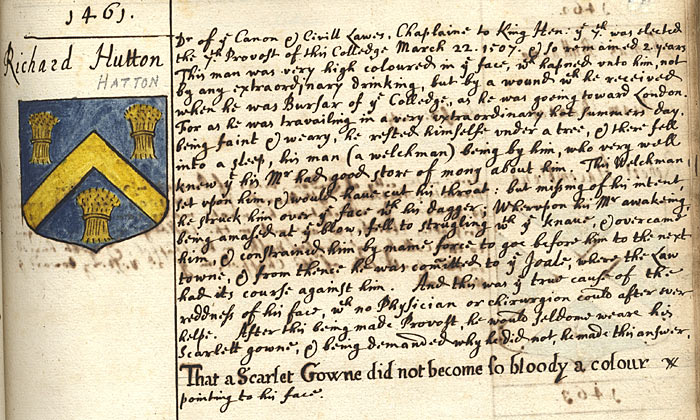 1461.
Richard Hutton
HATTON
Dr of ye Canon & Civill Lawes, Chaplaine to King Hen: ye 7th was elected
the 7th Provost of this Colledge March 22. 1507. & so remained 2 years
This man was very high coloured in ye face, wch hapned vnto him, not
by any extraordinary drinking, but by a wound wch he received
when he was Bursar of ye Colledge, as he was going toward London.
For as he was travailing in a very extraordinary hot summers day.
being faint & weary, he rested himselfe under a tree, & there fell
into a sleep, his man (a welchman) being by him, who very well
knew yt his Mr had good store of mony about him. This Welchman
set vpon him, & would haue cut his throat: but missing of his intent,
he struck him over ye face wth his dagger; Wherupon his Mr awakeing,
being amased at ye blow, fell to strugling wth ye knaue, & overcame
him, & constrained him by maine force to goe before him to the next
towne, & from thence he was comitted to ye Joale, where the Law
had its course against him. And this was ye true cause of the
reddness of his face, wch no Physician or chirurgion could after ever
helpe. After this being made Provost, he would seldome weare his
Scarlett gowne, & being demanded why he did not, he made this answer.
That a Scarlet Gowne did not become so bloody a colour
pointing to his face.